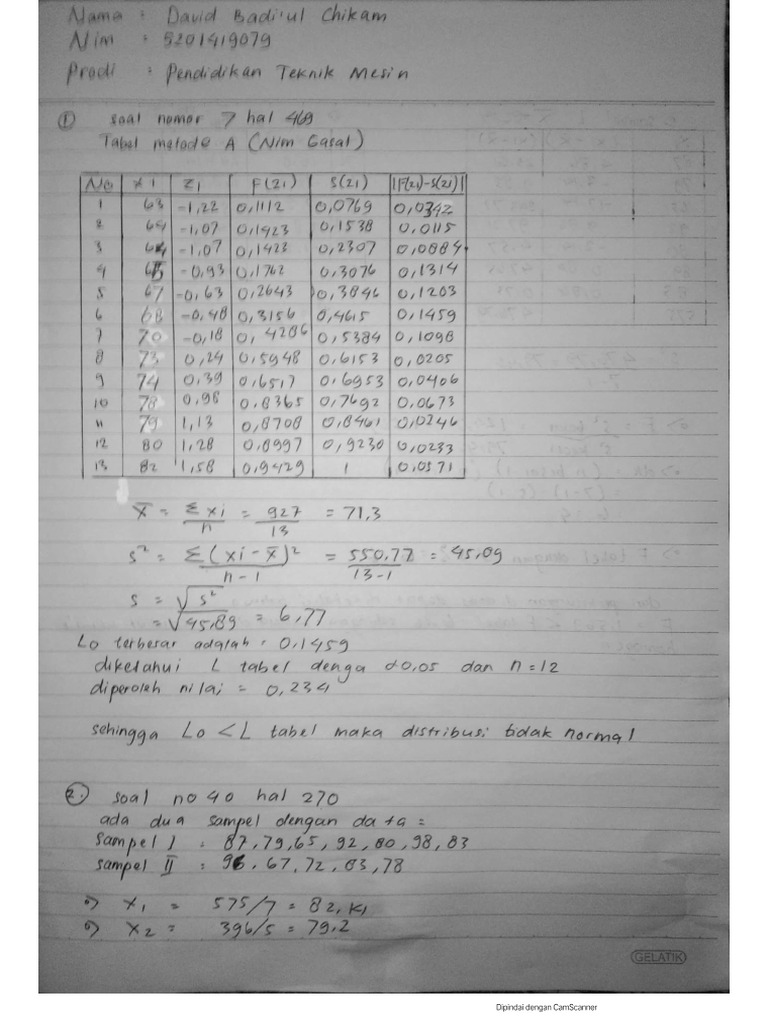 Nama : David Badi'ul Chikam
Nim : 5201419079
Prodi : Pendidikan Teknik Mesin
① soal nomor 7 hal 469
Tabel metode A (Nim Gasal)
No x1 Z1 F(Z1) S(Z1) |F(Z1)-S(Z1)|
1 63 -1,22 0,1112 0,0769 0,0342
2 64 -1,07 0,1423 0,1538 0,0115
3 64 -1,07 0,1423 0,2307 0,0884
4 65 -0,93 0,1762 0,3076 0,1314
5 67 -0,63 0,2643 0,3846 0,1203
6 68 -0,48 0,3156 0,4615 0,1459
7 70 -0,18 0,4286 0,5384 0,1098
8 73 0,24 0,5948 0,6153 0,0205
9 74 0,39 0,6517 0,6953 0,0406
10 78 0,98 0,8365 0,7692 0,0673
11 79 1,13 0,8708 0,8461 0,0246
12 80 1,28 0,8997 0,9230 0,0233
13 82 1,58 0,9429 1 0,0571
x̄ = Σxi/n = 927/13 = 71,3
s² = Σ(xi - x̄)²/n-1 = 550,77/13-1 = 45,89
s = √s²
= √45,89 = 6,77
Lo terbesar adalah = 0,1459
diketahui L tabel denga α0,05 dan n = 12
diperoleh nilai = 0,234
sehingga Lo < L tabel maka distribusi tidak normal
2. soal no 40 hal 270
ada dua sampel dengan data =
sampel I : 87, 79, 65, 92, 80, 98, 83
sampel II : 96, 67, 72, 83, 78
x1 = 575/7 = 82,
x2 = 396/5 = 79.2
GELATIK
Dipindai dengan CamScanner